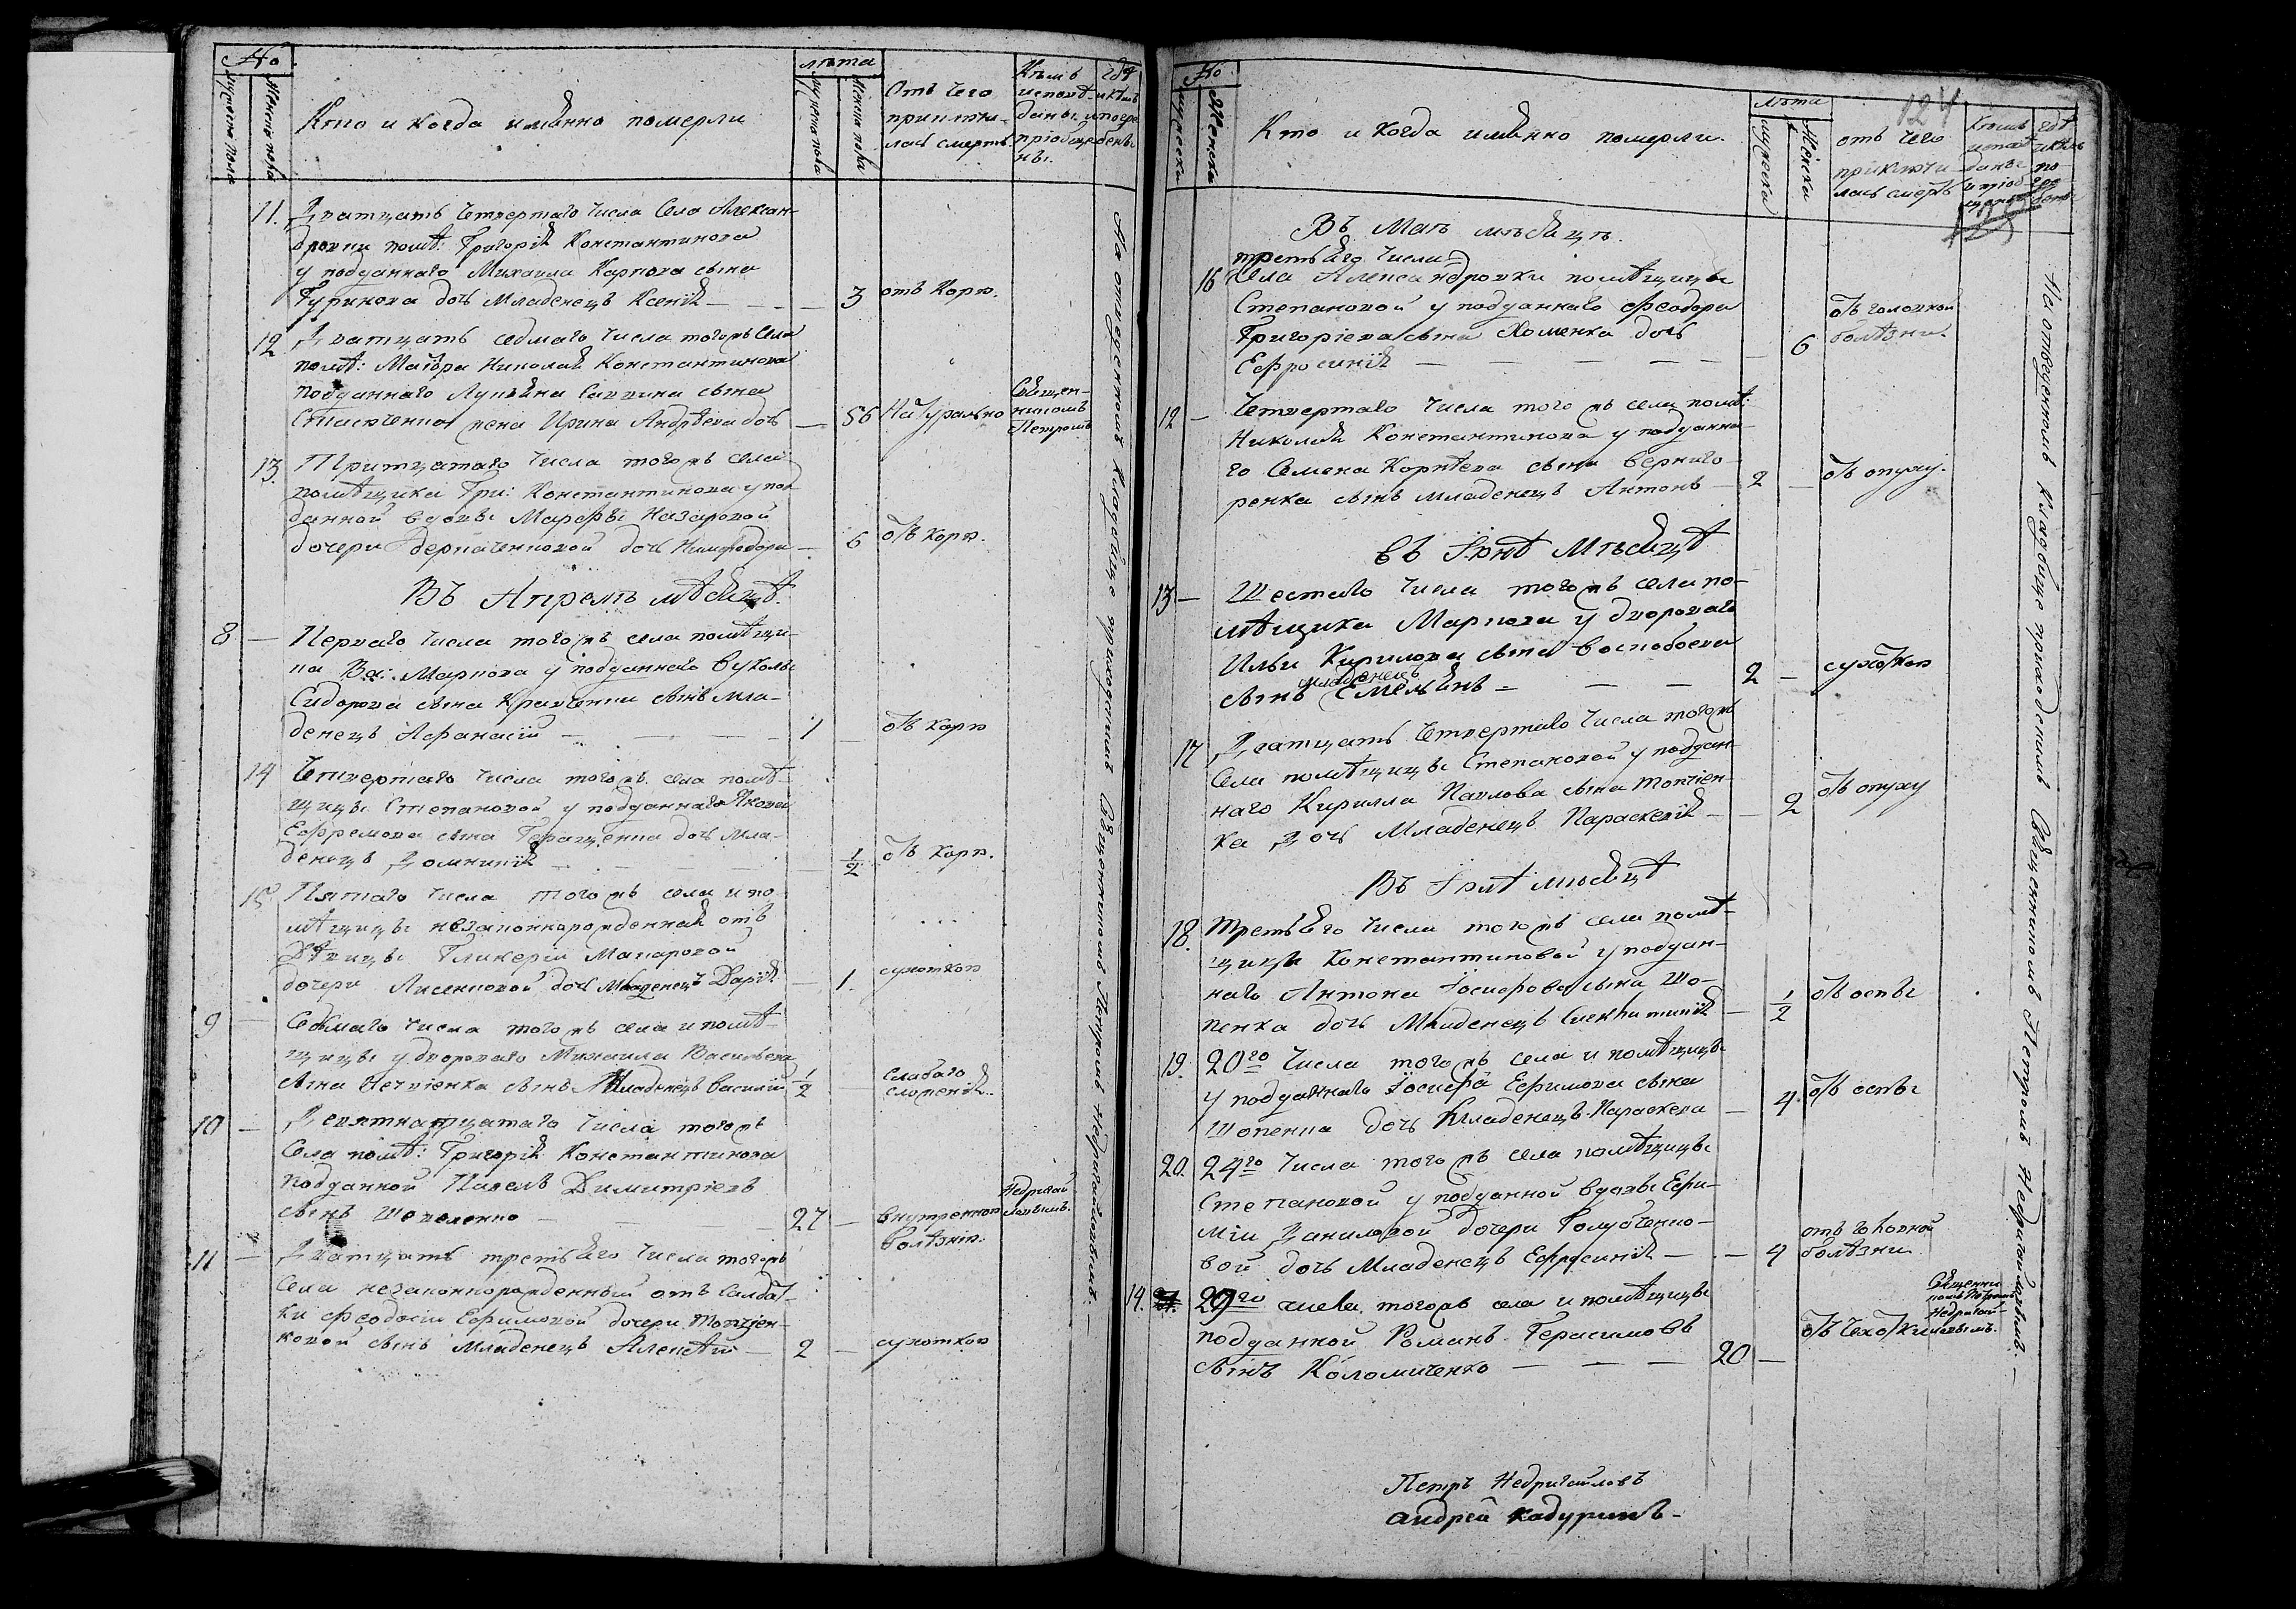 №
мужеска пола
женска пола
Кто и когда имянно померли
лѣта
мужеска пола
женска пола
Отъ чего
приключи-
лась смерть
Кѣмъ
исповѣ-
даны и
пріобще-
ны.
гдѣ
и кѣмъ
погре-
бены
11. Дватцать четвертаго числа Села Алексан-
дровки помѣ: Григорія Константинова
у подданнаго Михаила Карпова сына
дочь Младенецъ Ксенія — — 3 отъ Кору.
12 Дватцать седмаго числа тогожъ Села
помѣ: Маіора Николая Константинова
подданнаго Лукьяна Саввина сына
жена Ирина Андрѣева дочь — 56 Натурально
Священ-
никомъ
Петромъ
13. Тритцатаго числа тогожъ села
помѣщика Гри: Константинова у под-
данной вдовы Марфы Назаровой
дочери Деркаченковой дочь Нимфодора — 6 отъ кору.
Въ Апрелѣ мѣсяцѣ.
8 — Перваго числа тогожъ села помѣщи-
ка Ва: Маркова у подданнаго Вуколы
Сидорова сына Кравченка сынъ мла-
денецъ Афанасій — — — 1 — отъ кору
14 Четвертаго числа тогожъ села помѣ-
щицы Степановой у подданнаго Якова
Ефремова сына Геращенка дочь мла-
денецъ Домникія — — — 1/2 отъ кору.
15 Пятаго числа тогожъ села и по-
мѣщицы незаконнорожденная отъ
Дѣвицы Гликеріи Макаровой
дочери Лисенковой дочь Младенецъ Дарія — 1. сухоткою
9 — Седмаго числа тогожъ села и помѣ-
щицы у двороваго Михаила Васильева
сына Нечвіенка сынъ Младенецъ Василій 1/2 — Слабаго
сложенія.
10 — Девятнатцатаго числа тогожъ
Села помѣ: Григорія Константинова
подданной Павелъ Димитріевъ
сынъ Шевеленко — — 27 — внутренною
болѣзнію.
Недригай-
ловымъ.
11 — Дватцать третьяго числа тогожъ
Села незаконнорожденный отъ салдат-
ки Феодосіи Ефимовой дочери
сынъ младенецъ Алексѣй — 2 — сухоткою
На отведенномъ кладбище приходскимъ Священникомъ Петромъ Недригайловымъ.
№
мужеска
Женска
Кто и когда имянно померли.
лѣта
мужеска
Женска
124
125
отъ чего
приключи-
лась смерть
Кѣмъ
исповѣ-
даны
и пріоб-
щены
гдѣ
и кѣмъ
по-
гре-
бены
Въ Маѣ мѣсяцѣ.
третьяго числа
16 Села Александровки помѣщицы
Степановой у подданнаго Феодора
Григоріева сына Хоменка дочь
Ефросинія — — — — — 6 отъ головной
болѣзни.
12 — Четвертаго числа тогожъ села помѣ:
Николая Константинова у подданна-
го Семена Корнѣева сына Верниго-
ренка сынъ младенецъ Антонъ — 2 — отъ опуху.
въ Іюнѣ мѣсяцѣ
13 — Шестаго числа тогожъ села по-
мѣщика Маркова у двороваго
Ильи Кирилова сына Воскобоева
младенецъ
сынъ Емельянъ — — — 2 — сухоткою
17 Дватцать четвертаго числа тогожъ
Села помѣщицы Степановой у поддан-
наго Кирилла Павлова сына
ка Дочь Младенецъ Параскевія — — 2 отъ опуху
Въ Іюлѣ мѣсяцѣ
18. третьяго числа тогожъ села помѣ-
щицы Константиновой у поддан-
наго Антона Іосифова сына Шо-
пенка дочь Младенецъ — 1/2 отъ оспы
19. 20го числа тогожъ села и помѣщицы
у подданнаго Іосифа Ефимова сына
Шопенка дочь Младенецъ Параскева — 4. отъ оспы
20. 24го числа тогожъ села помѣщицы
Степановой у подданной вдовы Ефи-
міи Даниловой дочери Голубченко-
вой дочь Младенецъ Ефросинія — — 4 отъ головной
болѣзни
14. 29го числа тогожъ села и помѣщицы
подданной Романъ Герасимовъ
сынъ Коломиченко — — — 20 — отъ чехотки
Священни-
комъ Петромъ
Недригай-
ловымъ.
Петръ Недригайловъ
Андрей Кадуринъ —
На отведенномъ кладбище приходскимъ Священникомъ Петромъ Недригайловымъ. —